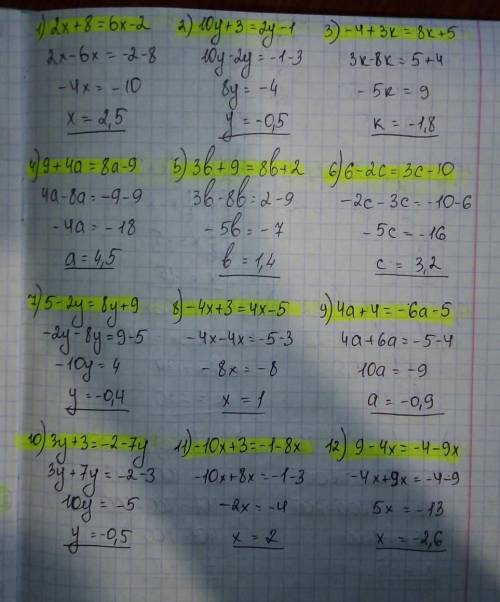 1) 2x+8=6x-2
2x-6x=-2-8
-4x=-10
x=2,5
2) 10y+3=2y-1
10y-2y=-1-3
8y=-4
y=-0,5
3) -4+3к=8к+5
3к-8к=5+4
-5к=9
к=-1,8
4) 9+4a=8a-9
4a-8a=-9-9
-4a=-18
a=4,5
5) 3в+9=8в+2
3в-8в=2-9
-5в=-7
в=1,4
6) 6-2c=3c-10
-2c-3c=-10-6
-5c=-16
c=3,2
7) 5-2y=8y+9
-2y-8y=9-5
-10y=4
y=-0,4
8) -4x+3=4x-5
-4x-4x=-5-3
-8x=-8
x=1
9) 4a+4=-6a-5
4a+6a=-5-4
10a=-9
a=-0,9
10) 3y+3=-2-7y
3y+7y=-2-3
10y=-5
y=-0,5
11) -10x+3=-1-8x
-10x+8x=-1-3
-2x=-4
x=2
12) 9-4x=-4-9x
-4x+9x=-4-9
5x=-13
x=-2,6